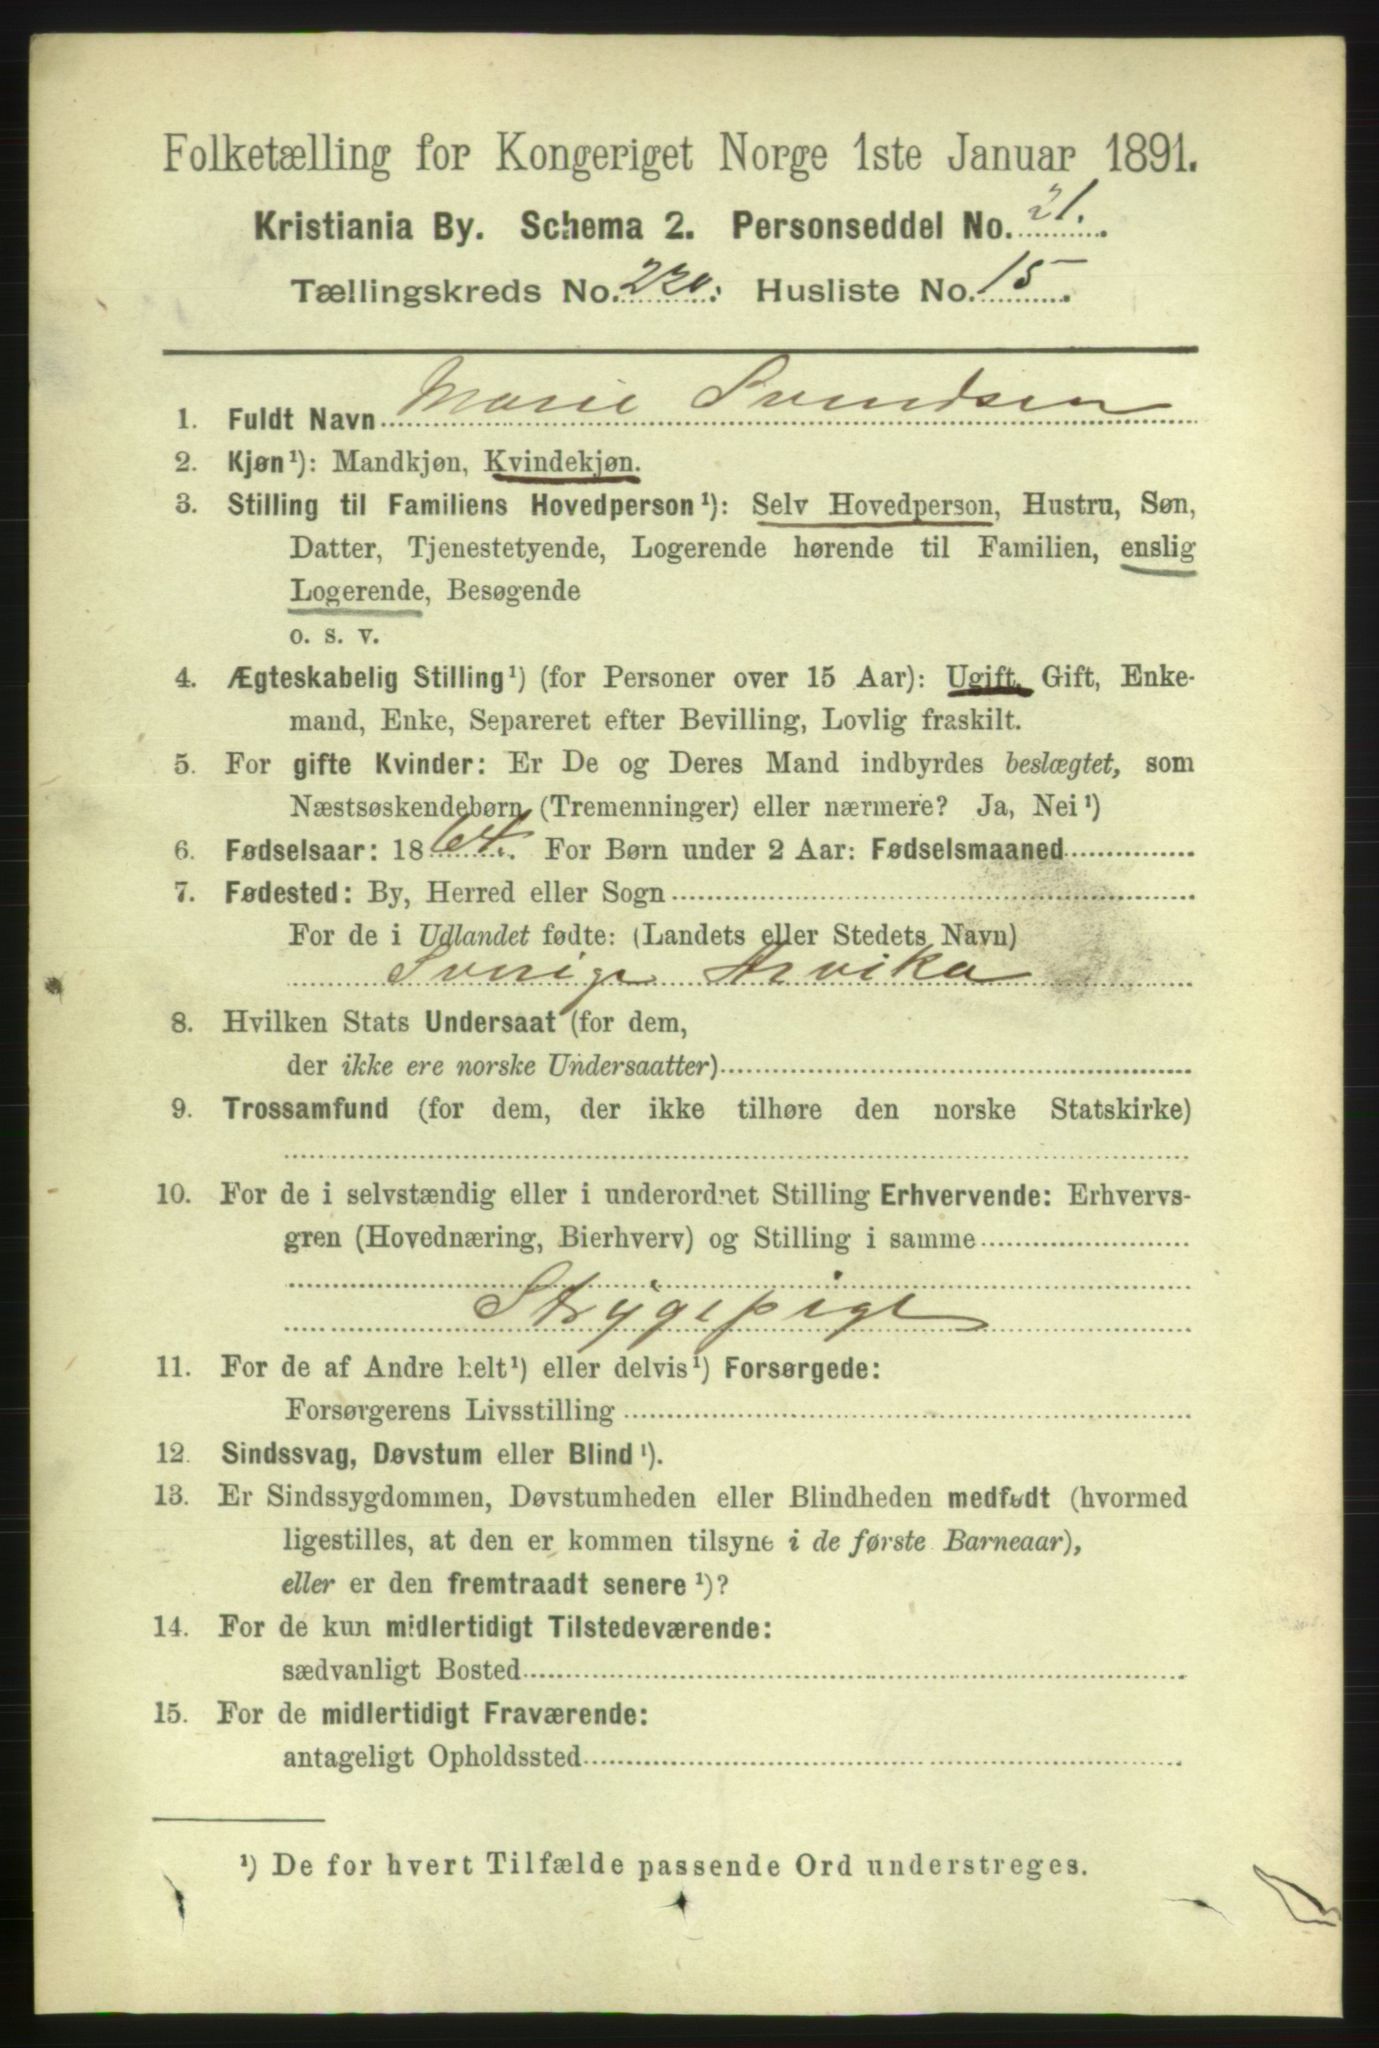 Folketælling for Kongeriget Norge 1ste Januar 1891.
Kristiania By. Schema 2. Personseddel No. 21.
Tællingskreds No. 220. Husliste No. 15.
1. Fuldt Navn Marie Svendsen
2. Kjøn¹): Mandkjøn, Kvindekjøn.
3. Stilling til Familiens Hovedperson¹): Selv Hovedperson, Hustru, Søn,
Datter, Tjenestetyende, Logerende hørende til Familien, enslig
Logerende, Besøgende
o. s. v.
4. Ægteskabelig Stilling¹) (for Personer over 15 Aar): Ugift, Gift, Enke-
mand, Enke, Separeret efter Bevilling, Lovlig fraskilt.
5. For gifte Kvinder: Er De og Deres Mand indbyrdes beslægtet, som
Næstsøskendebørn (Tremenninger) eller nærmere? Ja, Nei¹)
6. Fødselsaar: 1864. For Børn under 2 Aar: Fødselsmaaned
7. Fødested: By, Herred eller Sogn
For de i Udlandet fødte: (Landets eller Stedets Navn)
Sverige Arvika
8. Hvilken Stats Undersaat (for dem,
der ikke ere norske Undersaatter)
9. Trossamfund (for dem, der ikke tilhøre den norske Statskirke)
10. For de i selvstændig eller i underordnet Stilling Erhvervende: Erhvervs-
gren (Hovednæring, Bierhverv) og Stilling i samme
Strygepige
11. For de af Andre helt¹) eller delvis¹) Forsørgede:
Forsørgerens Livsstilling
12. Sindssvag, Døvstum eller Blind¹).
13. Er Sindssygdommen, Døvstumheden eller Blindheden medfødt (hvormed
ligestilles, at den er kommen tilsyne i de første Barneaar),
eller er den fremtraadt senere¹)?
14. For de kun midlertidigt Tilstedeværende:
sædvanligt Bosted
15. For de midlertidigt Fraværende:
antageligt Opholdssted
¹) De for hvert Tilfælde passende Ord understreges.